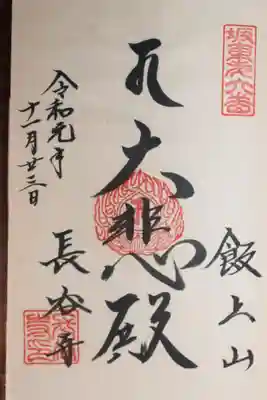 坂東第六番
飯上山
大悲殿
令和元年
十一月廿三日
長谷寺